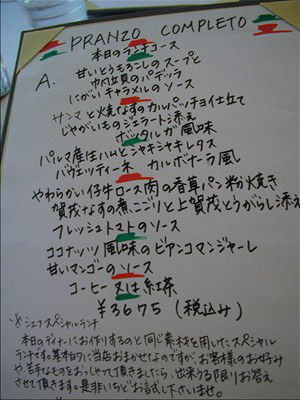 PRANZO COMPLETO
本日のランチコース
A. 甘いとうもろこしのスープと
帆立貝のパデッラ
にがいキャラメルのソース
サンマと焼なすのカルパッチョ仕立て
じゃがいものジェラート添え
ボッタルガ風味
パルマ産生ハムとシャキシャキレタス
バヴェッティーネ カルボナーラ風
やわらかい仔牛ロース肉の香草パン粉焼き
賀茂なすの煮こごりと上賀茂とうがらし添え
フレッシュトマトのソース
ココナッツ風味のビアンコマンジャーレ
甘いマンゴーのソース
コーヒー又は紅茶
¥3675 (税込み)
※シェフスペシャルランチ
本日のディナーにお作りするのと同じ素材を用いたスペシャル
ランチです。基本的に当店おまかせですが、お客様のお好み
や、苦手なものをおっしゃって頂きましたら、出来うる限りお答え
させて頂きます。是非いちどお試し下さいませ。